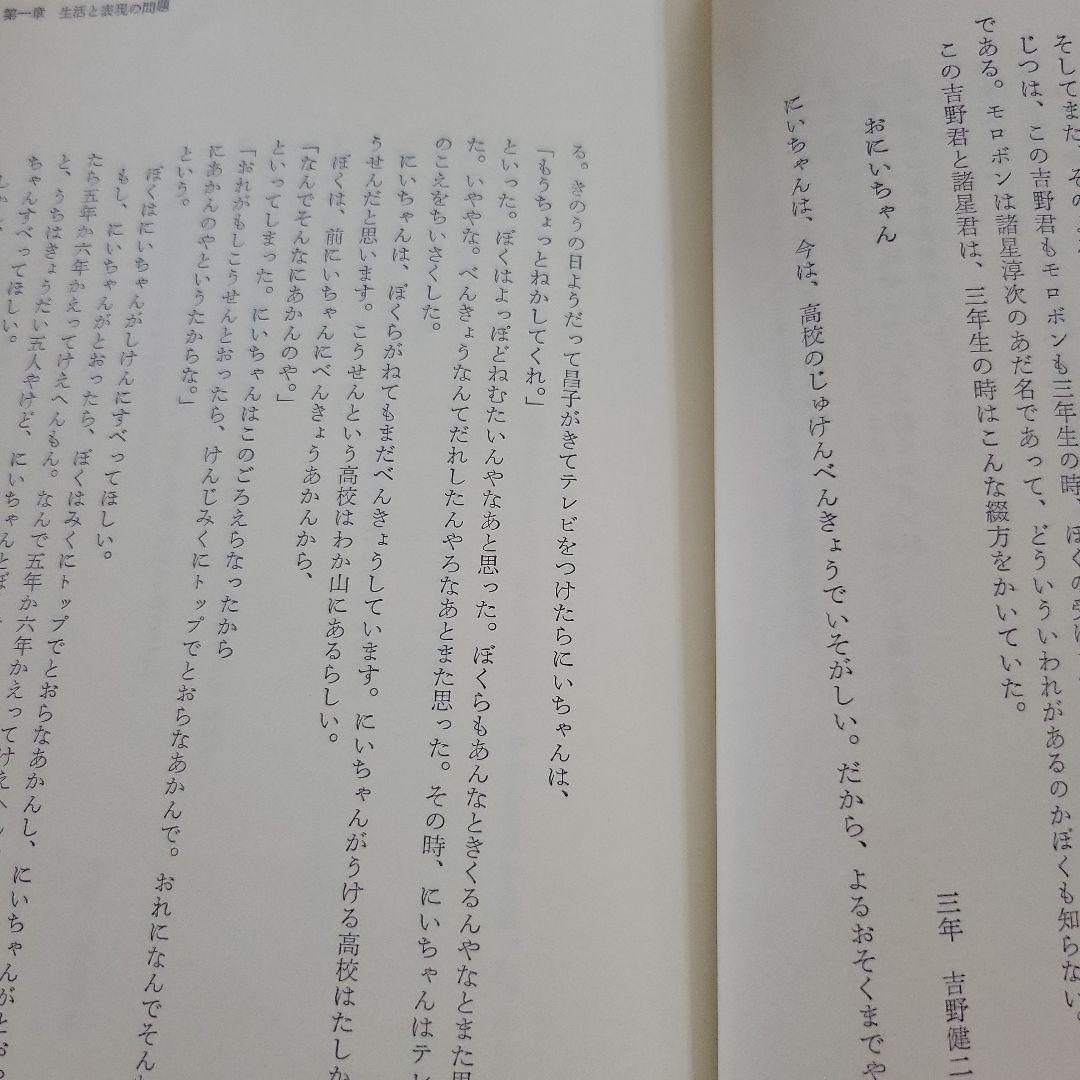 そしてまた、その
じつは、この吉野君もモロボンも三年生の時、ぼくの
である。モロボンは諸星淳次のあだ名であって、どういういわれがあるのかぼくも知らない。
この吉野君と諸星君は、三年生の時はこんな綴方をかいていた。
おにいちゃん
三年 吉野健二
にいちゃんは、今は、高校のじゅけんべんきょうでいそがしい。だから、よるおそくまでや
第一章 生活と表現の問題
る。きのうの日ようだって昌子がきてテレビをつけたらにいちゃんは、
「もうちょっとねかしてくれ。」
といった。ぼくはよっぽどねむたいんやなあと思った。ぼくらもあんなときくるんやなとまた思
た。いややな。べんきょうなんてだれしたんやろなあとまた思った。その時、にいちゃんはテレ
のこえをちいさくした。
にいちゃんは、ぼくらがねてもまだべんきょうしています。にいちゃんがうける高校はたしか
うせんだと思います。こうせんという高校はわか山にあるらしい。
ぼくは、前にいちゃんにべんきょうあかんから、
「なんでそんなにあかんのや。」
といってしまった。にいちゃんはこのごろえらなったから
「おれがもしこうせんとおったら、けんじみくにトップでとおらなあかんで。おれになんでそん
にあかんのやというたからな。」
という。
ぼくはにいちゃんがしけんにすべってほしい。
もし、にいちゃんがとおったら、ぼくはみくにトップでとおらなあかんし、にいちゃんがとおっ
たら五年か六年かえってけえへんもん。なんで五年か六年かえってけえへん
と、うちはきょうだい五人やけど、にいちゃんとぼ
ちゃんすべってほしい。